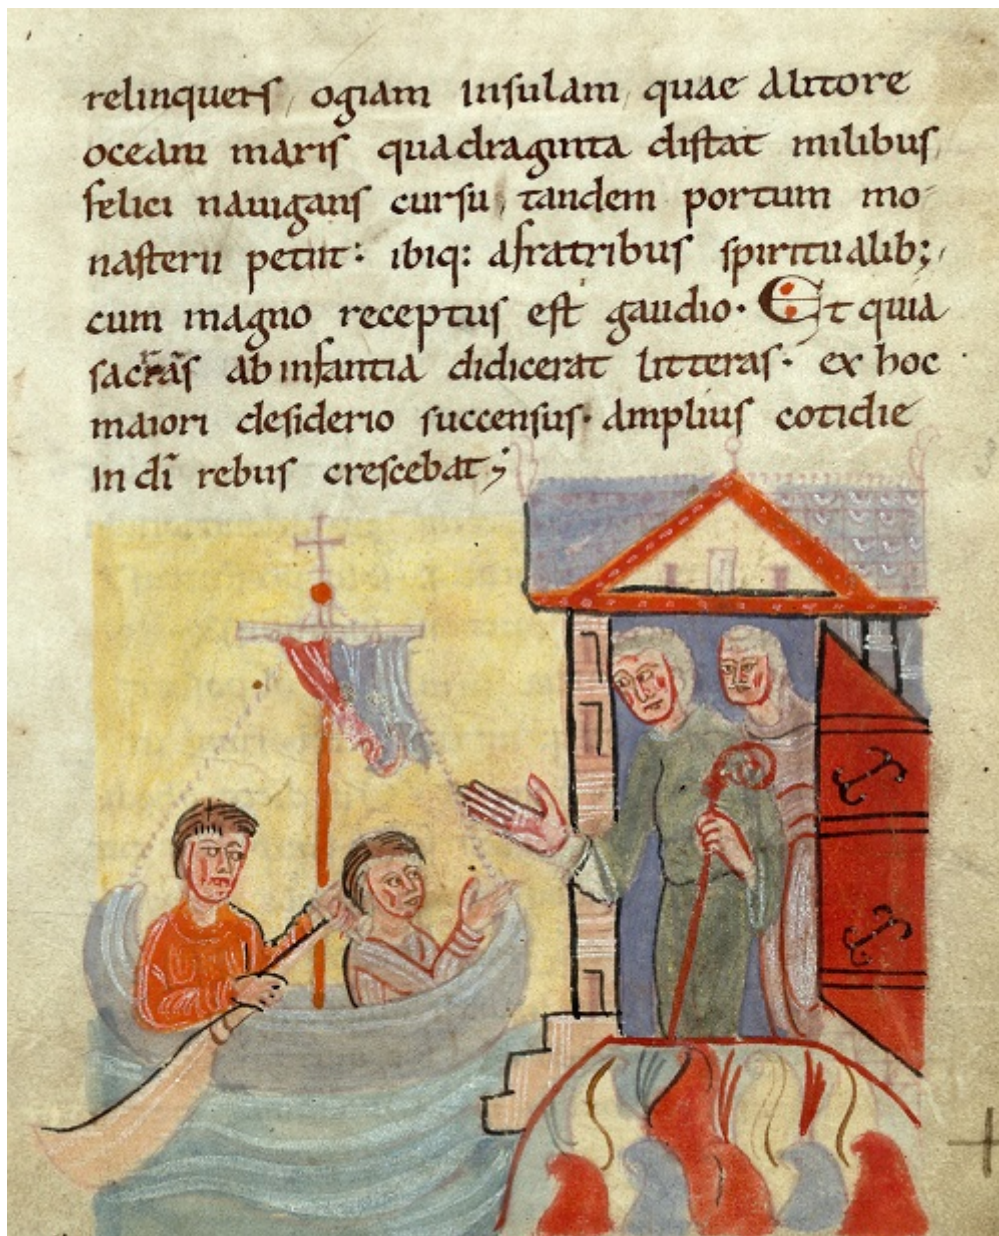 relinquens, ogiam insulam, quae alitore
oceani maris quadraginta distat milibus,
felici nauigans cursu, tandem portum mo-
nasterii petiit: ibiq: afratribus spiritualib;,
cum magno receptus est gaudio. Et quia
sacras ab infantia didicerat litteras. ex hoc
maiori desiderio succensus. amplius cotidie
in dī rebus crescebat;